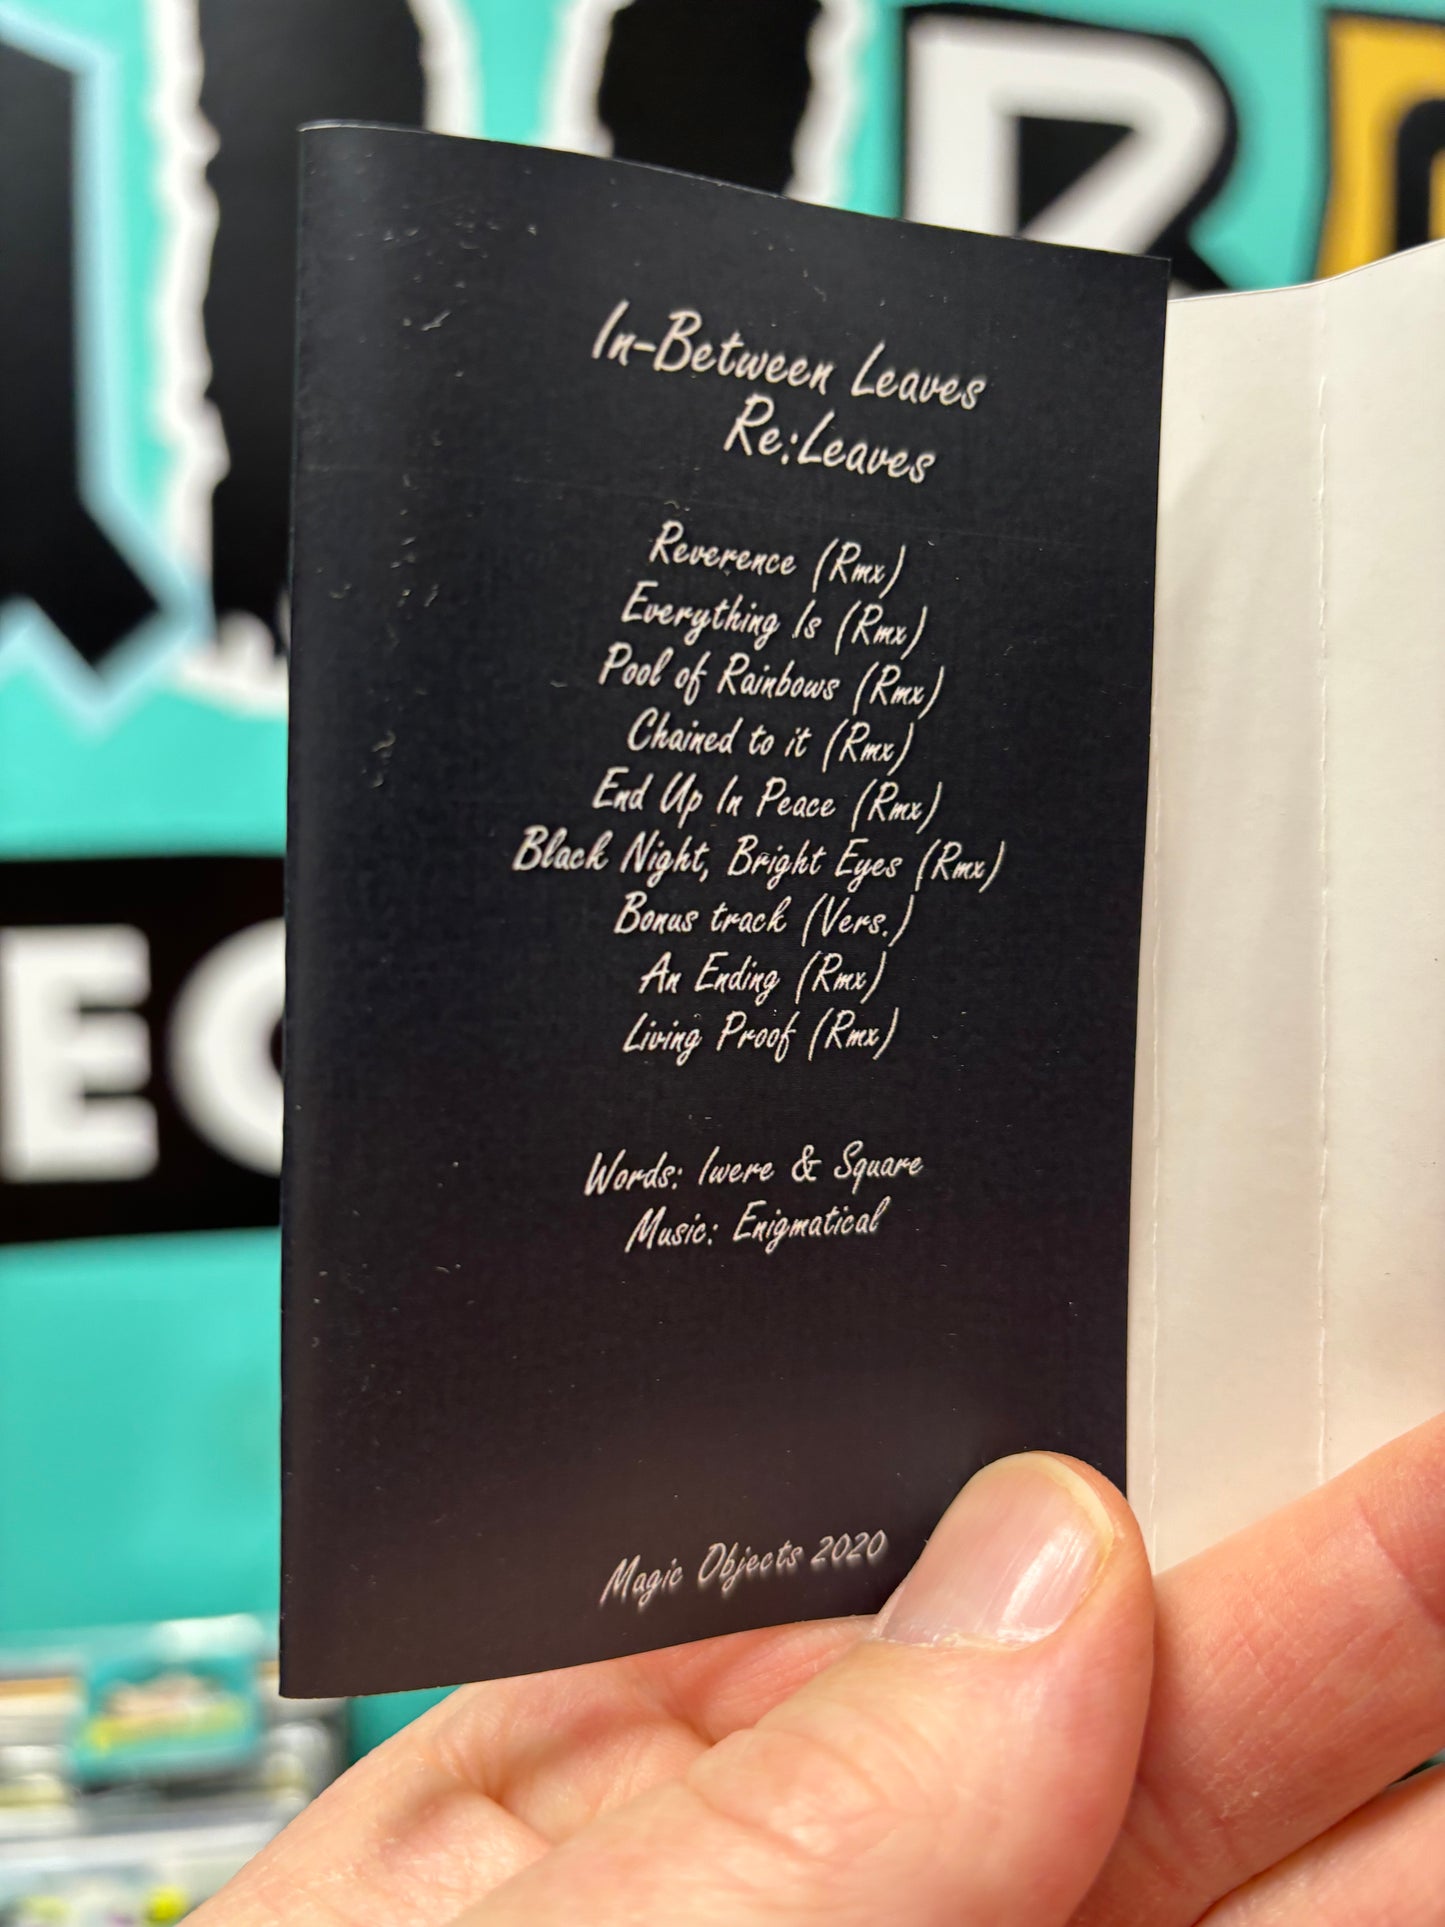 In-Between Leaves
Re:Leaves
Reverence (Rmx)
Everything Is (Rmx)
Pool of Rainbows (Rmx)
Chained to it (Rmx)
End Up In Peace (Rmx)
Black Night, Bright Eyes (Rmx)
Bonus track (Vers.)
An Ending (Rmx)
Living Proof (Rmx)
Words: Iwere & Square
Music: Enigmatical
Magic Objects 2020